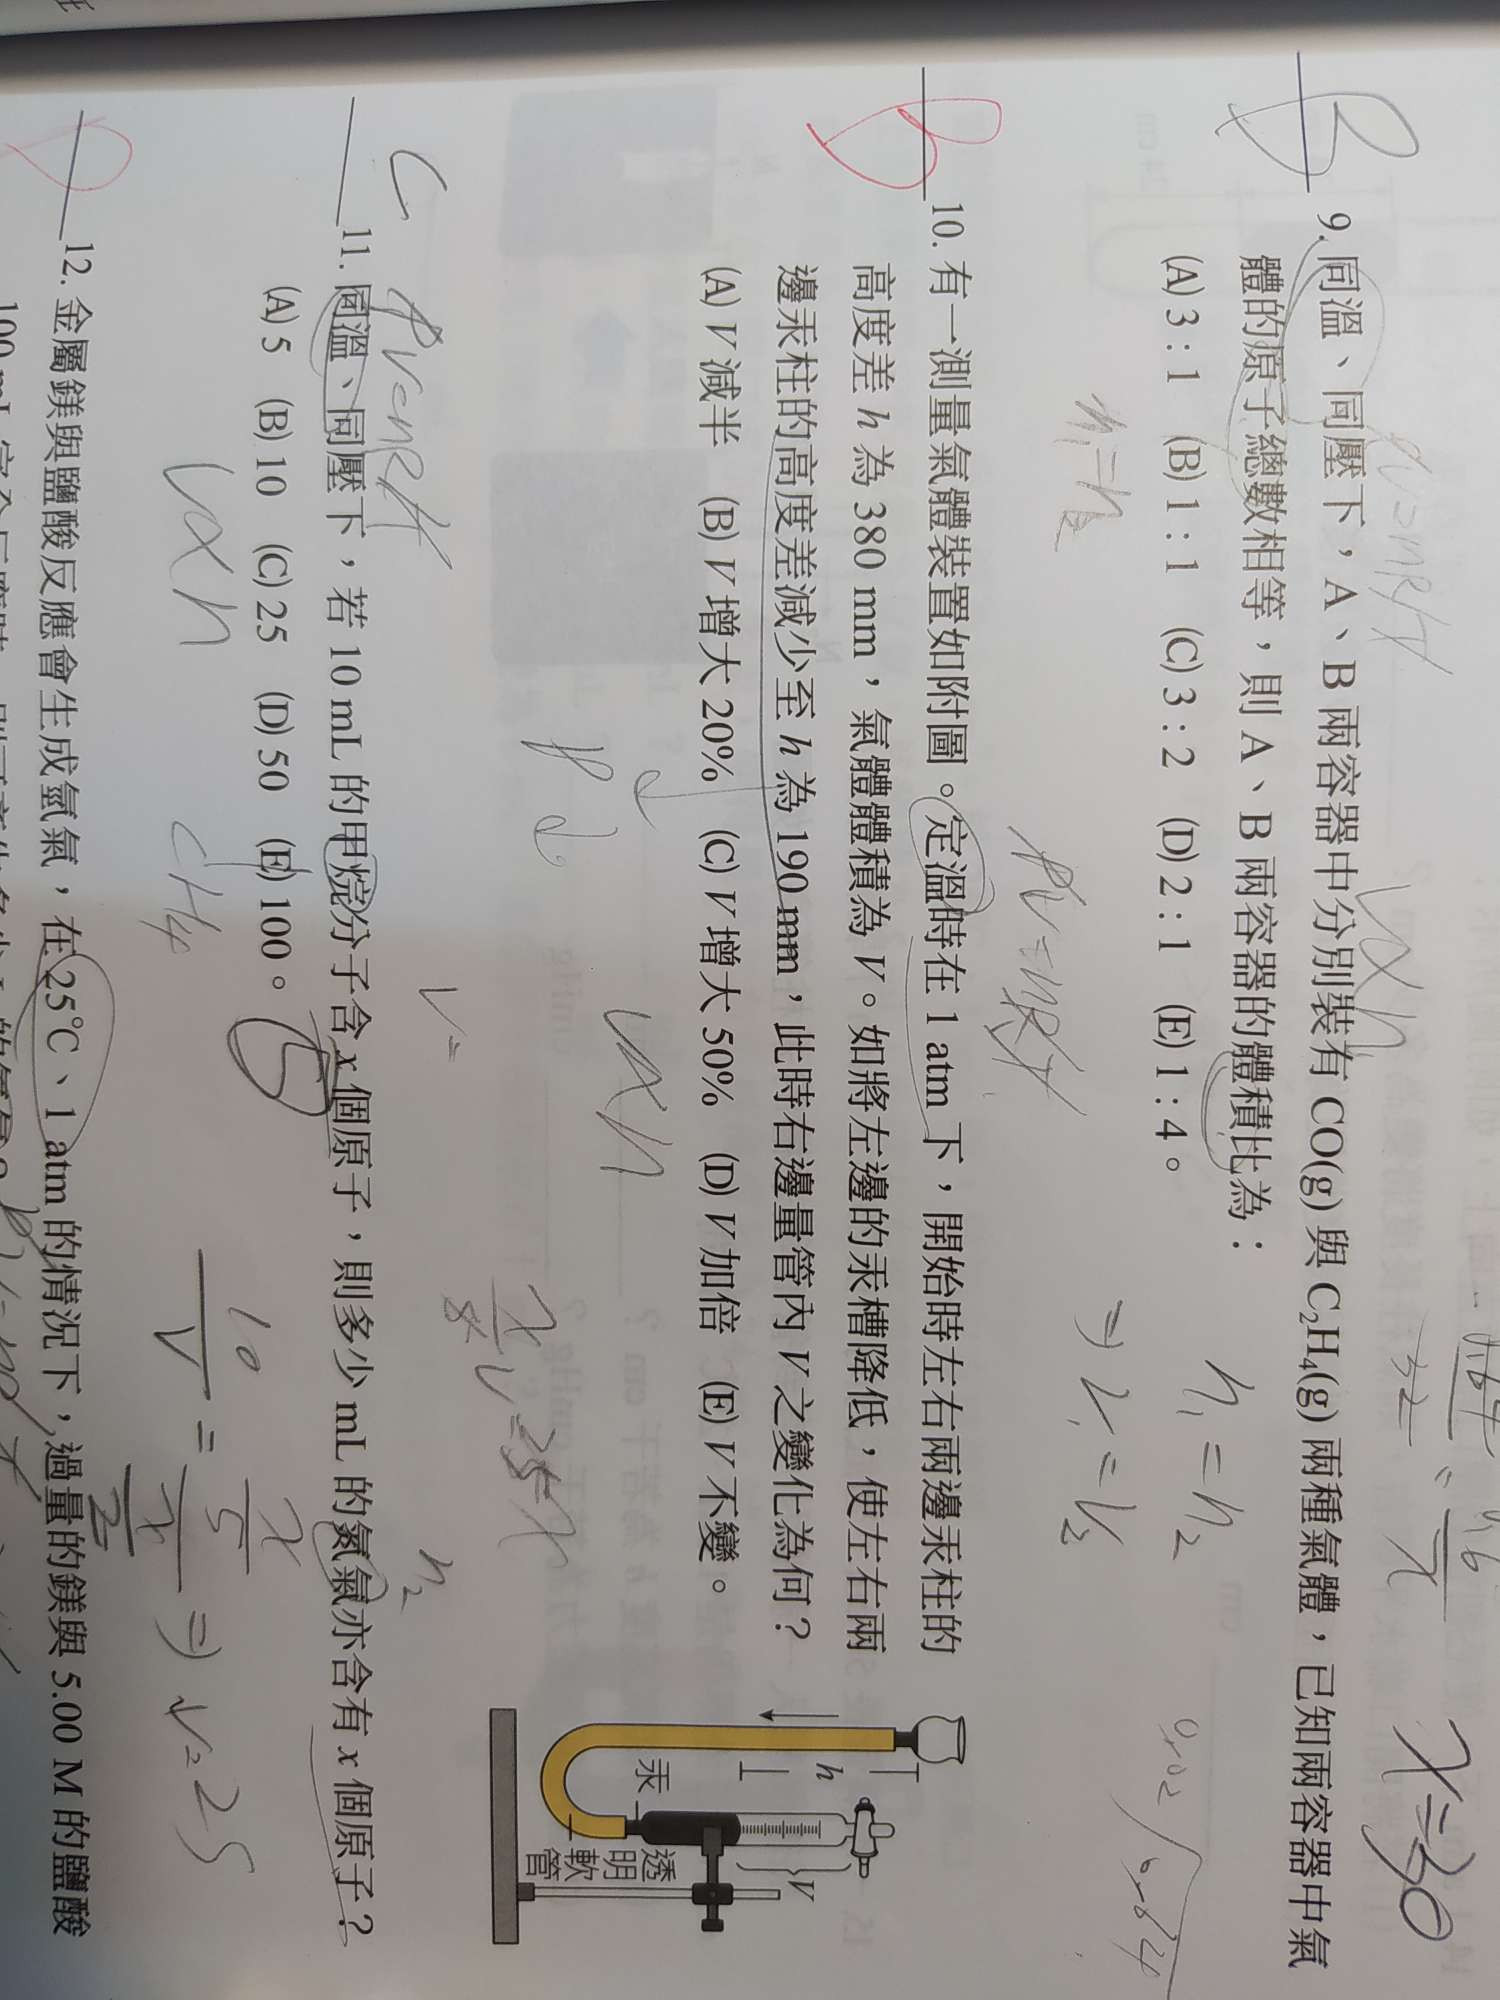 B
9. 同溫、同壓下，A、B 兩容器中分別裝有 CO(g) 與 C₂H₄(g) 兩種氣體，已知兩容器中氣
體的原子總數相等，則 A、B 兩容器的體積比為：
(A) 3：1 (B) 1：1 (C) 3：2 (D) 2：1 (E) 1：4。
PV=nRT
V∝n
x=30
n₁=n₂
PV=nRT
n₁=n₂
⇒V₁=V₂
B
10. 有一測量氣體裝置如附圖。定溫時在 1 atm 下，開始時左右兩邊汞柱的
高度差 h 為 380 mm，氣體體積為 V。如將左邊的汞槽降低，使左右兩
邊汞柱的高度差減少至 h 為 190 mm，此時右邊量管內 V 之變化為何？
(A) V 減半 (B) V 增大 20% (C) V 增大 50% (D) V 加倍 (E) V 不變。
h
V
汞
透
明
軟
管
P↓
V∝n
C
PV=nRT
11. 同溫、同壓下，若 10 mL 的甲烷分子含 x 個原子，則多少 mL 的氮氣亦含有 x 個原子？
(A) 5 (B) 10 (C) 25 (D) 50 (E) 100。
5
V∝n
CH₄
10/V = x/5 / x/2 ⇒ V=25
12. 金屬鎂與鹽酸反應會生成氫氣，在 25℃、1 atm 的情況下，過量的鎂與 5.00 M 的鹽酸